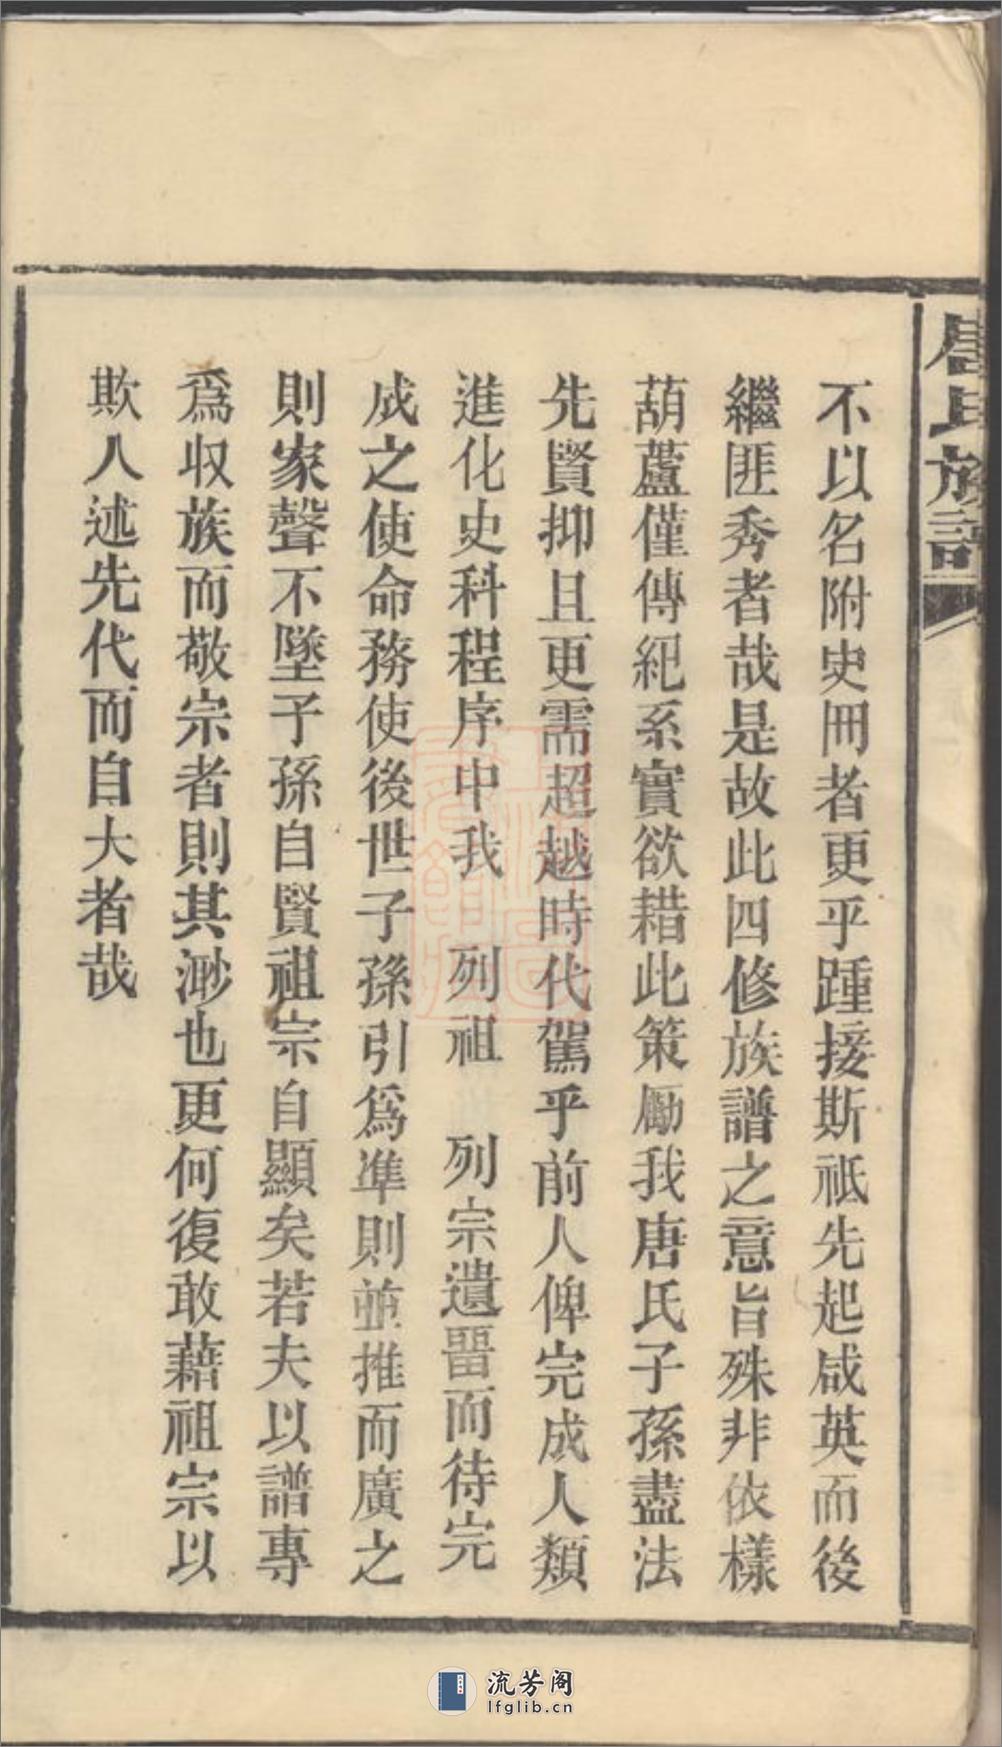 唐氏族譜
不以名附史冊者更乎踵接斯祗先起咸英而後
繼匪秀者哉是故此四修族譜之意旨殊非依樣
葫蘆僅傳紀系實欲耤此策勵我唐氏子孫盡法
先賢抑且更需超越時代駕乎前人俾完成人類
進化史科程序中我 列祖 列宗遺畱而待完
成之使命務使後世子孫引爲準則並推而廣之
則家聲不墜子孫自賢祖宗自顯矣若夫以譜專
爲収族而敬宗者則其渺也更何復敢藉祖宗以
欺人述先代而自大者哉
流芳阁
lfglib.cn